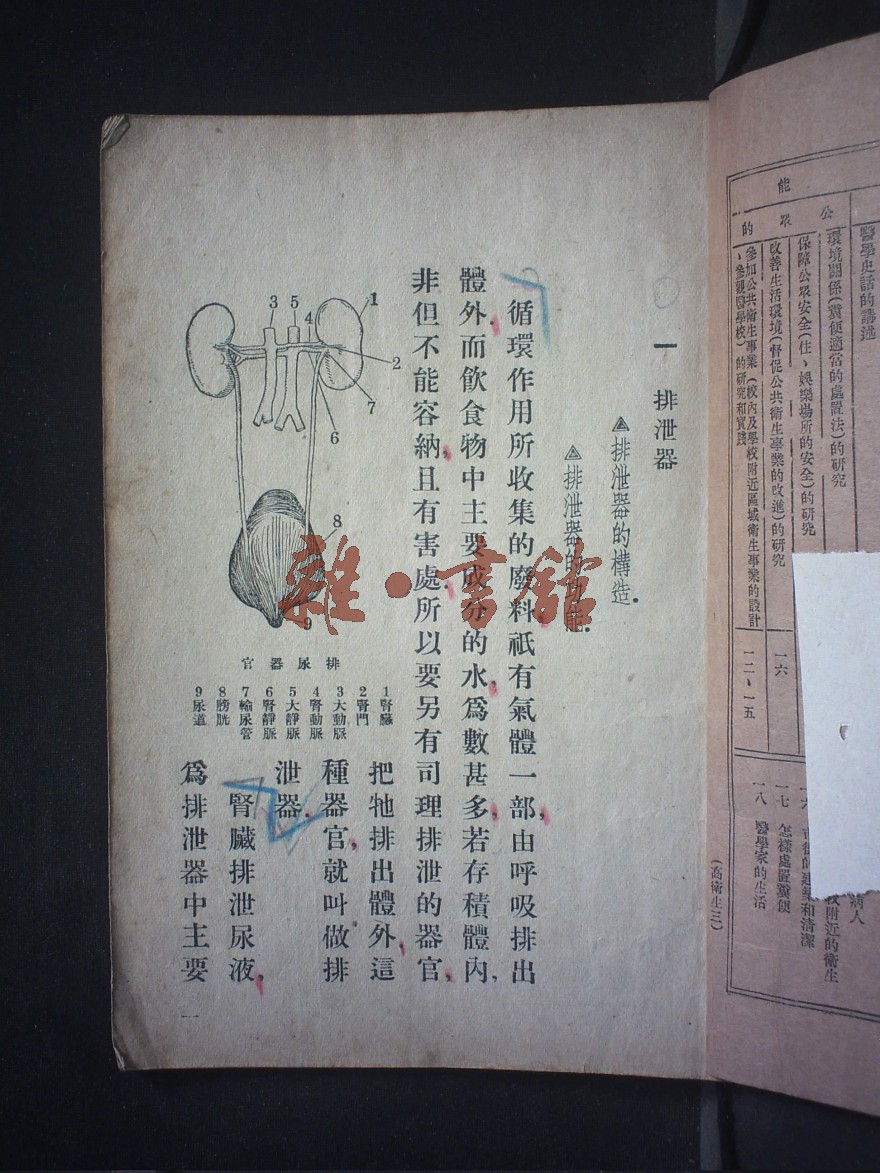 醫學史話的講述
公
環境關係(糞便適當的處置法)的研究
眾
保障公眾安全(住、娛樂場所的安全)的研究
能
改善生活環境(督促公共衛生事業的改進)的研究
一六
的
參加公共衛生事業(校內及學校附近區域衛生事業的設計
、參觀醫學校)的研究和實踐
一二、一五
病人
附近的衛生
和清潔
一七 怎樣處置糞便
一八 醫學家的生活
(高衛生三)
一 排泄器
排泄器的構造.
排泄器的功能.
循環作用所收集的廢料,祇有氣體一部,由呼吸排出
體外.而飲食物中主要成分的水,爲數甚多,若存積體內,
非但不能容納,且有害處.所以要另有司理排泄的器官,
把牠排出體外,這
種器官,就叫做排
泄器.
腎臟排泄尿液,
爲排泄器中主要
3
5
4
1
2
7
6
8
9
排尿器官
1腎臟
2腎門
3大動脈
4腎動脈
5大靜脈
6腎靜脈
7輸尿管
8膀胱
9尿道
一
雜·書館